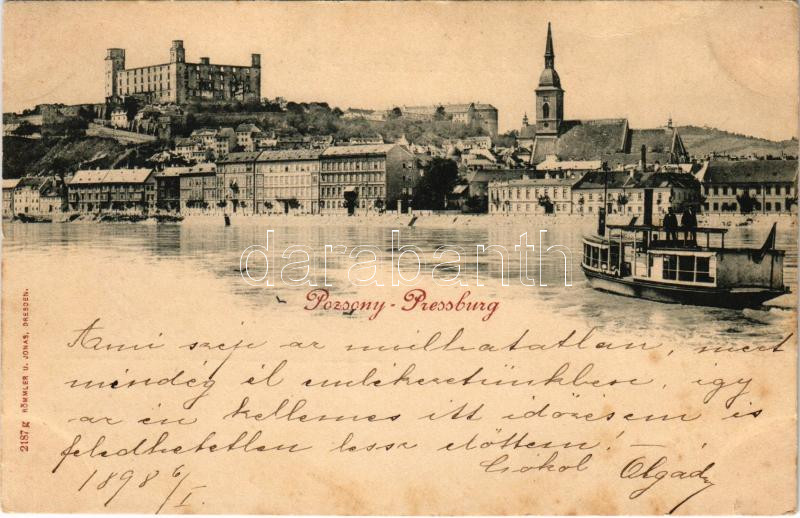 darabanth
Pozsony - Pressburg
Ami szép az mulhatatlan, mert
mindég él emlékezetünkbe, igy
az én kellemes itt időzésem is
feledhetetlen lessz előttem! —
Csókol Olgád
1898 6/I.
2187 g RÖMMLER U. JONAS, DRESDEN.